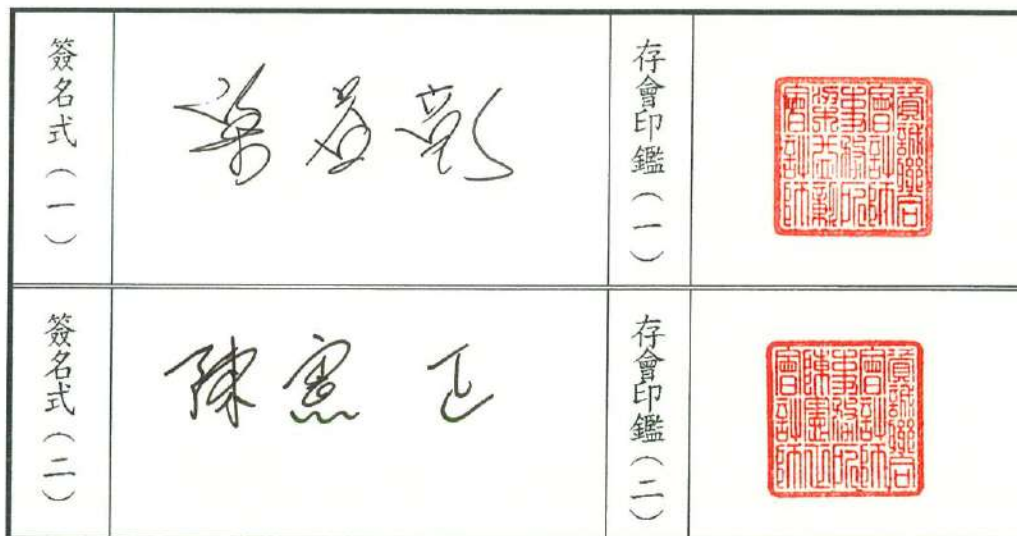 簽名式（一）
存會印鑑（一）
資誠聯合
會計師
事務所
會計師
簽名式（二）
陳憲正
存會印鑑（二）
資誠聯合
會計師
事務所
陳憲正
會計師